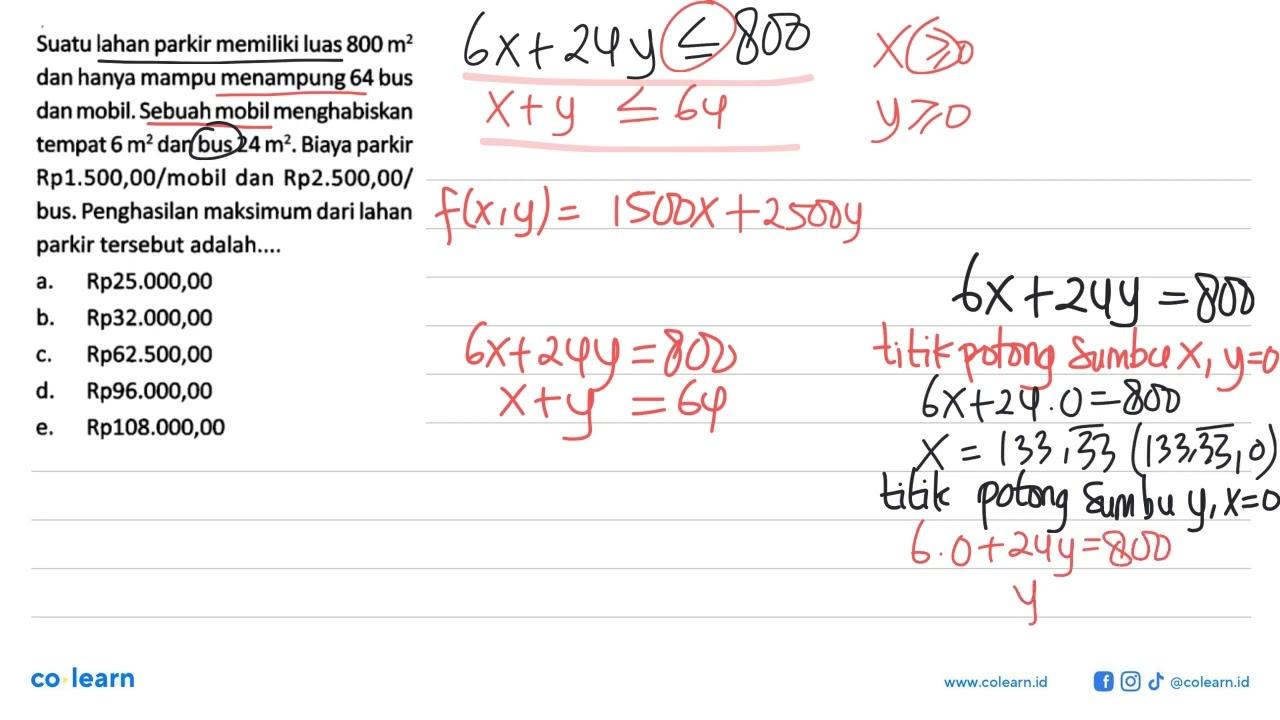 Suatu lahan parkir memiliki luas 800 m²
dan hanya mampu menampung 64 bus
dan mobil. Sebuah mobil menghabiskan
tempat 6 m² dan bus 24 m². Biaya parkir
Rp1.500,00/mobil dan Rp2.500,00/
bus. Penghasilan maksimum dari lahan
parkir tersebut adalah....
a. Rp25.000,00
b. Rp32.000,00
c. Rp62.500,00
d. Rp96.000,00
e. Rp108.000,00
6x+24y ≤ 800
x+y ≤ 64
x ≥ 0
y ≥ 0
f(x,y) = 1500x+2500y
6x+24y = 800
x+y = 64
6x+24y = 800
titik potong sumbu x, y=0
6x+24.0=800
x = 133,3̅3̅ (133,3̅3̅,0)
titik potong sumbu y, x=0
6.0+24y=800
y
co·learn
www.colearn.id
@colearn.id